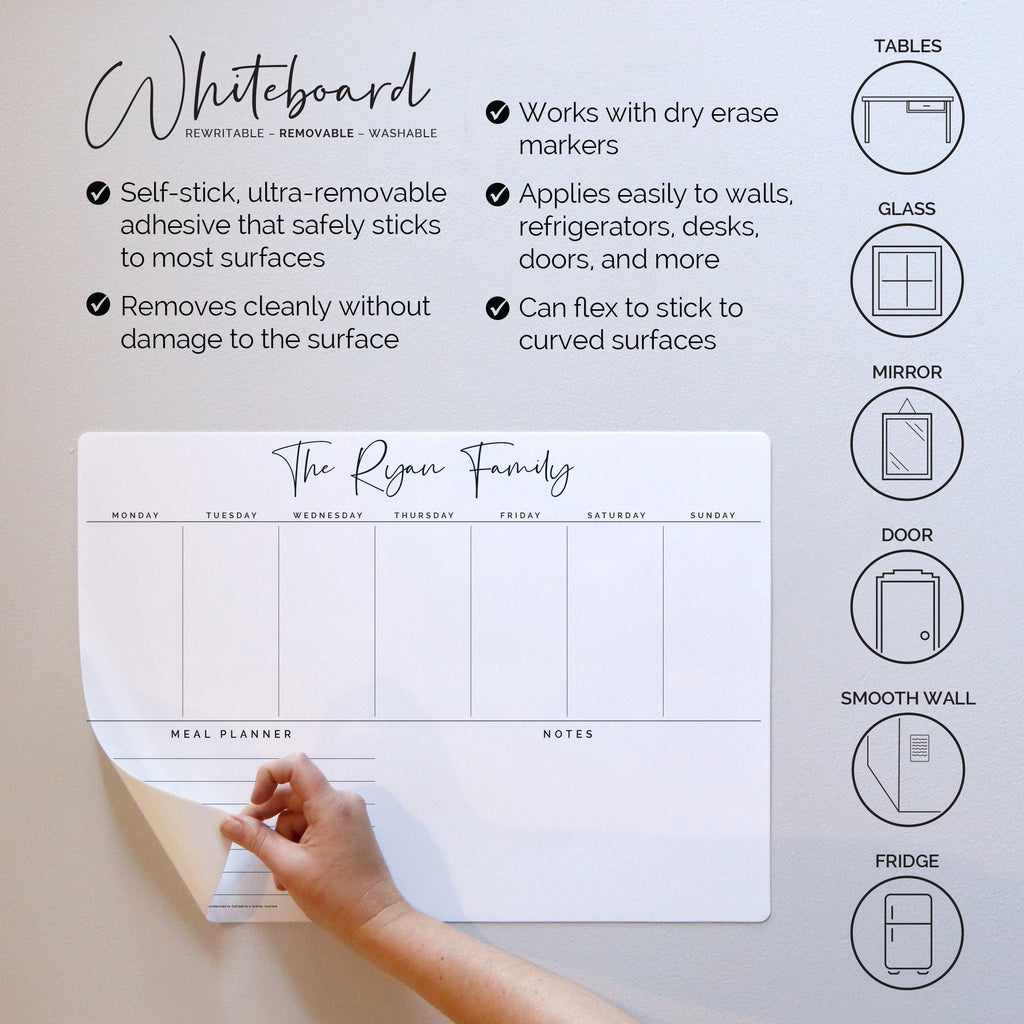 Whiteboard
REWRITABLE – REMOVABLE – WASHABLE
Self-stick, ultra-removable
adhesive that safely sticks
to most surfaces
Removes cleanly without
damage to the surface
Works with dry erase
markers
Applies easily to walls,
refrigerators, desks,
doors, and more
Can flex to stick to
curved surfaces
TABLES
GLASS
MIRROR
DOOR
SMOOTH WALL
FRIDGE
The Ryan Family
MONDAY TUESDAY WEDNESDAY THURSDAY FRIDAY SATURDAY SUNDAY
MEAL PLANNER NOTES